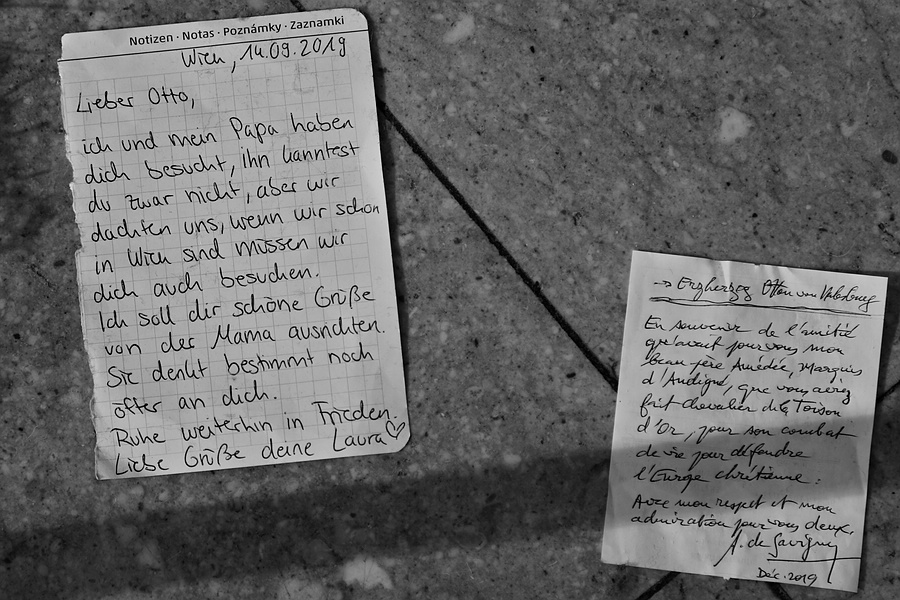 Notizen · Notas · Poznámky · Zaznamki
Wien, 14.09.2019
Lieber Otto,
ich und mein Papa haben
dich besucht, ihn kanntest
du zwar nicht, aber wir
dachten uns, wenn wir schon
in Wien sind müssen wir
dich auch besuchen.
Ich soll dir schöne Grüße
von der Mama ausrichten.
Sie denkt bestimmt noch
öfter an dich.
Ruhe weiterhin in Frieden.
Liebe Grüße deine Laura♡
→ Erzherzog Otto von Habsburg
En souvenir de l'amitié
qu'avait pour vous mon
beau-père Amédée, Marquis
d'Andigné, que vous aviez
fait chevalier de la Toison
d'Or, pour son combat
de vie pour défendre
l'Europe chrétienne :
Avec mon respect et mon
admiration pour vous deux.
A. de Savigny
Déc. 2019